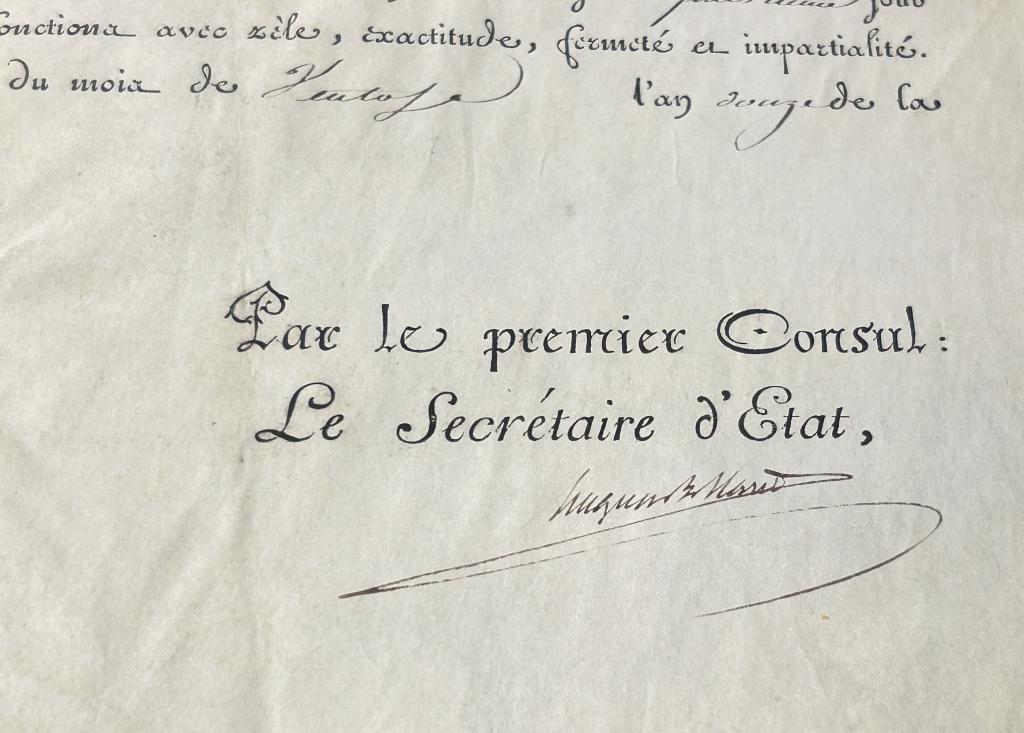 jour
fonctions avec zèle, exactitude, fermeté et impartialité.
du mois de Ventose l'an douze de la
Par le premier Consul:
Le Secrétaire d'Etat,
hugues B. Maret